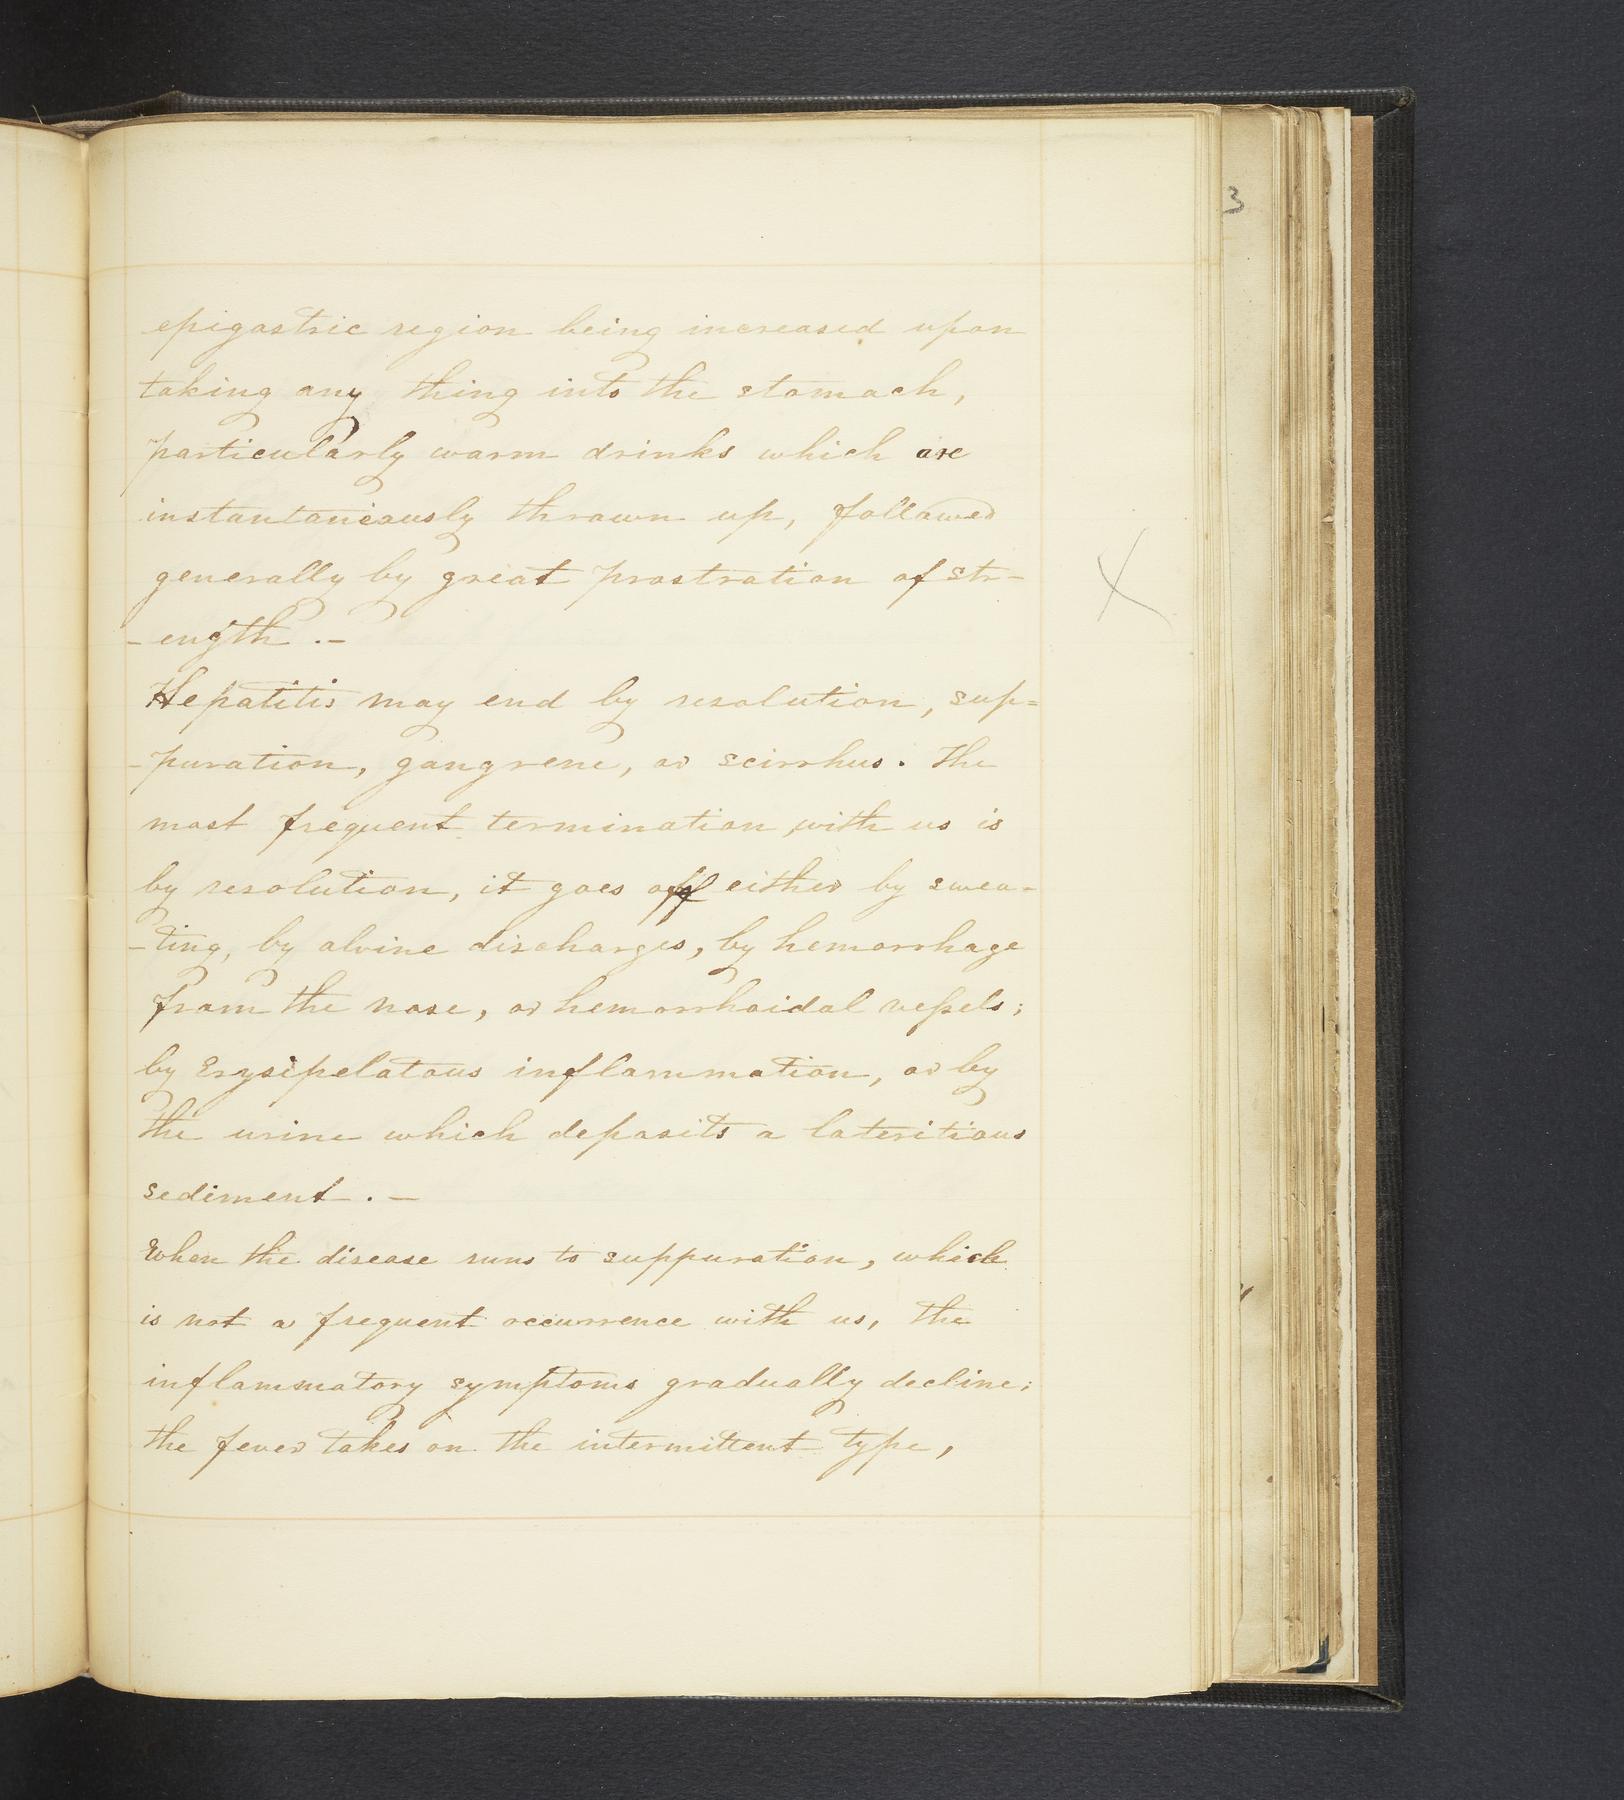 3
epigastric region being increased upon
taking any thing into the stomach,
particularly warm drinks which are
instantaneously thrown up, followed
generally by great prostration of str-
-ength .-
X
Hepatitis may end by resolution, sup=
-puration, gangrene, or scirrhus. The
most frequent termination with us is
by resolution, it goes off either by swea-
-ting, by alvine discharges, by hemorrhage
from the nose, or hemorrhoidal veſsels;
by Erysipelatous inflammation, or by
the urine which deposits a lateritious
sediment . -
When the disease runs to suppuration, which
is not a frequent occurrence with us, the
inflammatory symptoms gradually decline;
the fever takes on the intermittent type,